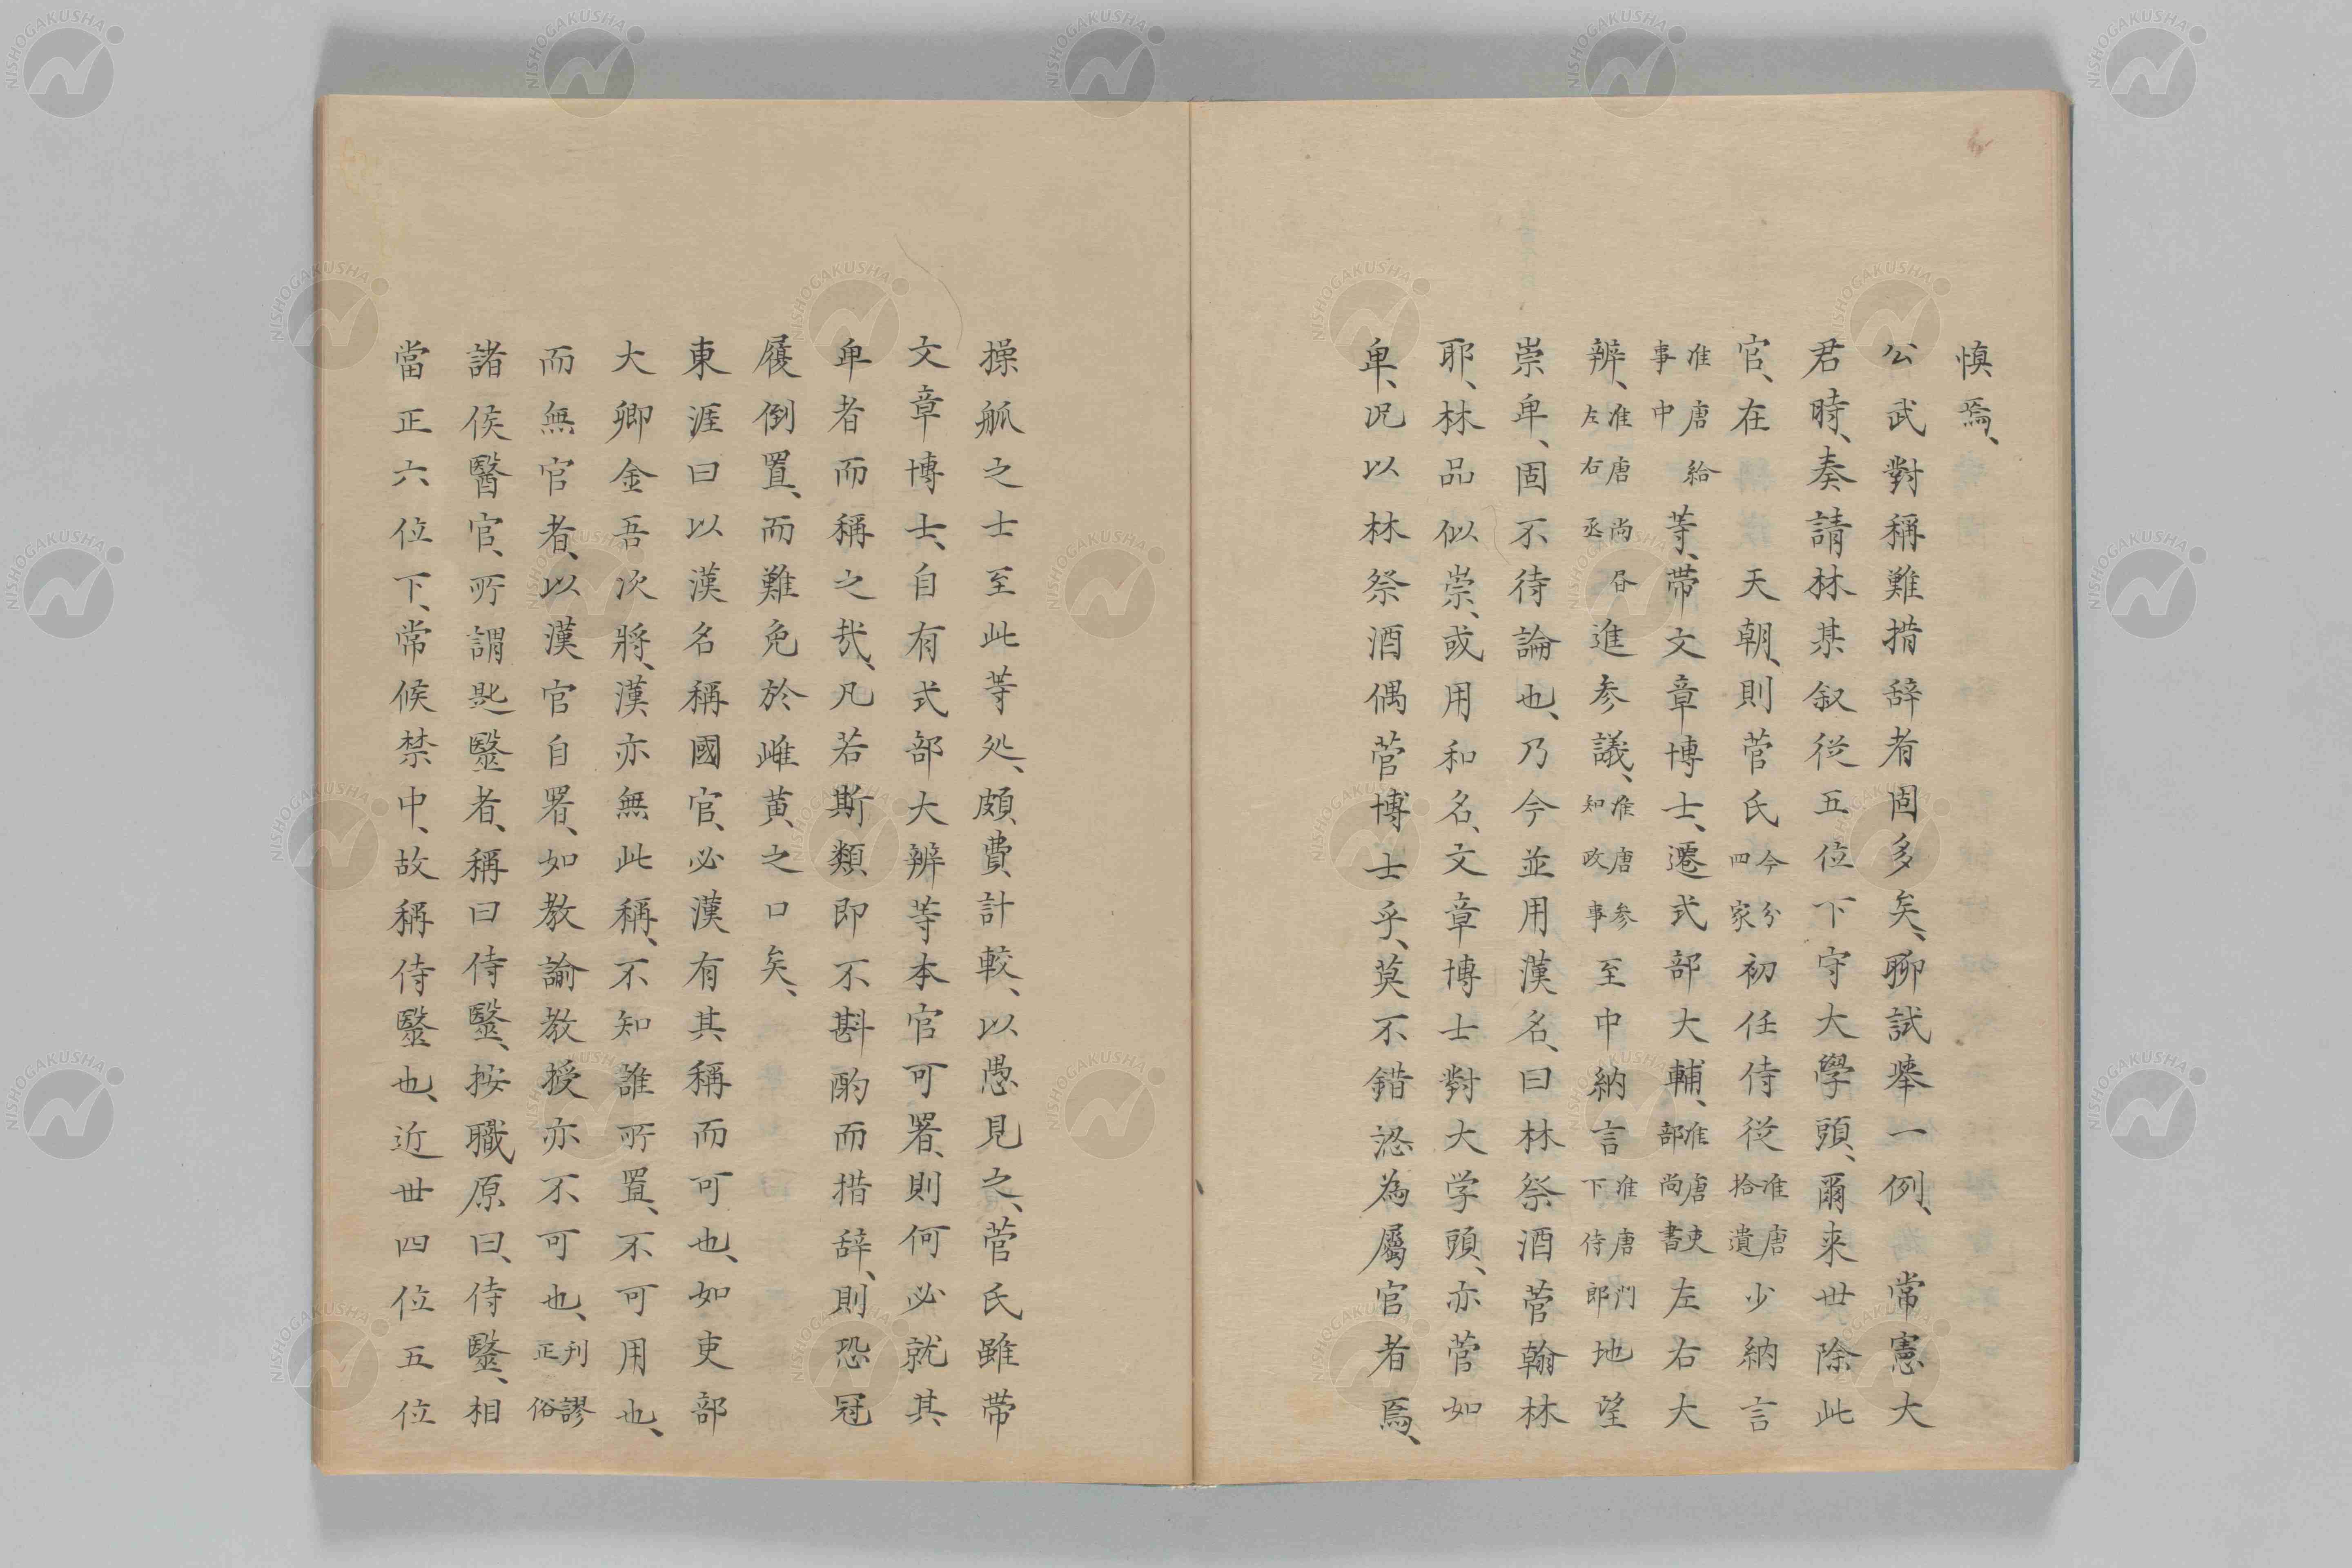 慎焉、
公武對稱難措辞者固多矣、聊試擧一例、常憲大
君時、奏請林某叙従五位下守大學頭、爾来世除此
官、在天朝、則菅氏今分四家初任侍従准唐拾遺少納言
准唐給事中等、帶文章博士、遷式部大輔、准唐吏部尚書左右大
辨、准唐尚昼左右丞進参議、准唐参知政事至中納言准唐門下侍郎地望
崇卑、固不待論也、乃今並用漢名、曰林祭酒菅翰林
耶、林品似崇、或用和名、文章博士對大学頭、亦菅如
卑、况以林祭酒偶菅博士乎、莫不錯認為屬官者焉、
操觚之士至此等処、頗費計較、以愚見之、菅氏雖帶
文章博士、自有式部大辨等本官可署、則何必就其
卑者而稱之哉、凡若斯類即不斟酌而措辞、則恐冠
履倒置、而難免於雌黄之口矣、
東涯曰以漢名稱國官、必漢有其稱而可也、如吏部
大卿金吾次將、漢亦無此稱、不知誰所置、不可用也、
而無官者、以漢官自署、如教諭教授亦不可也、刊謬正俗
諸侯醫官、所謂匙毉者、稱曰侍毉、按職原曰、侍毉、相
當正六位下、常候禁中、故稱侍毉也、近世四位五位
NISHOGAKUSHA